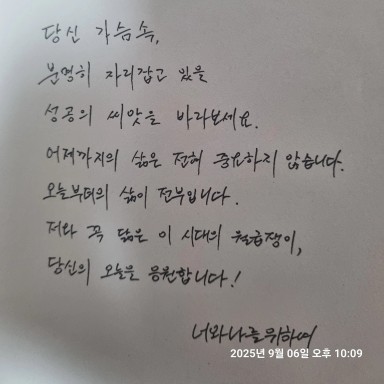 당신 가슴속,
분명히 자리잡고 있을
성공의 씨앗을 바라보세요.
어제까지의 삶은 전혀 중요하지 않습니다.
오늘부터의 삶이 전부입니다.
저와 꼭 닮은 이 시대의 월급쟁이,
당신의 오늘을 응원합니다!
너와나를위하여
2025년 9월 06일 오후 10:09